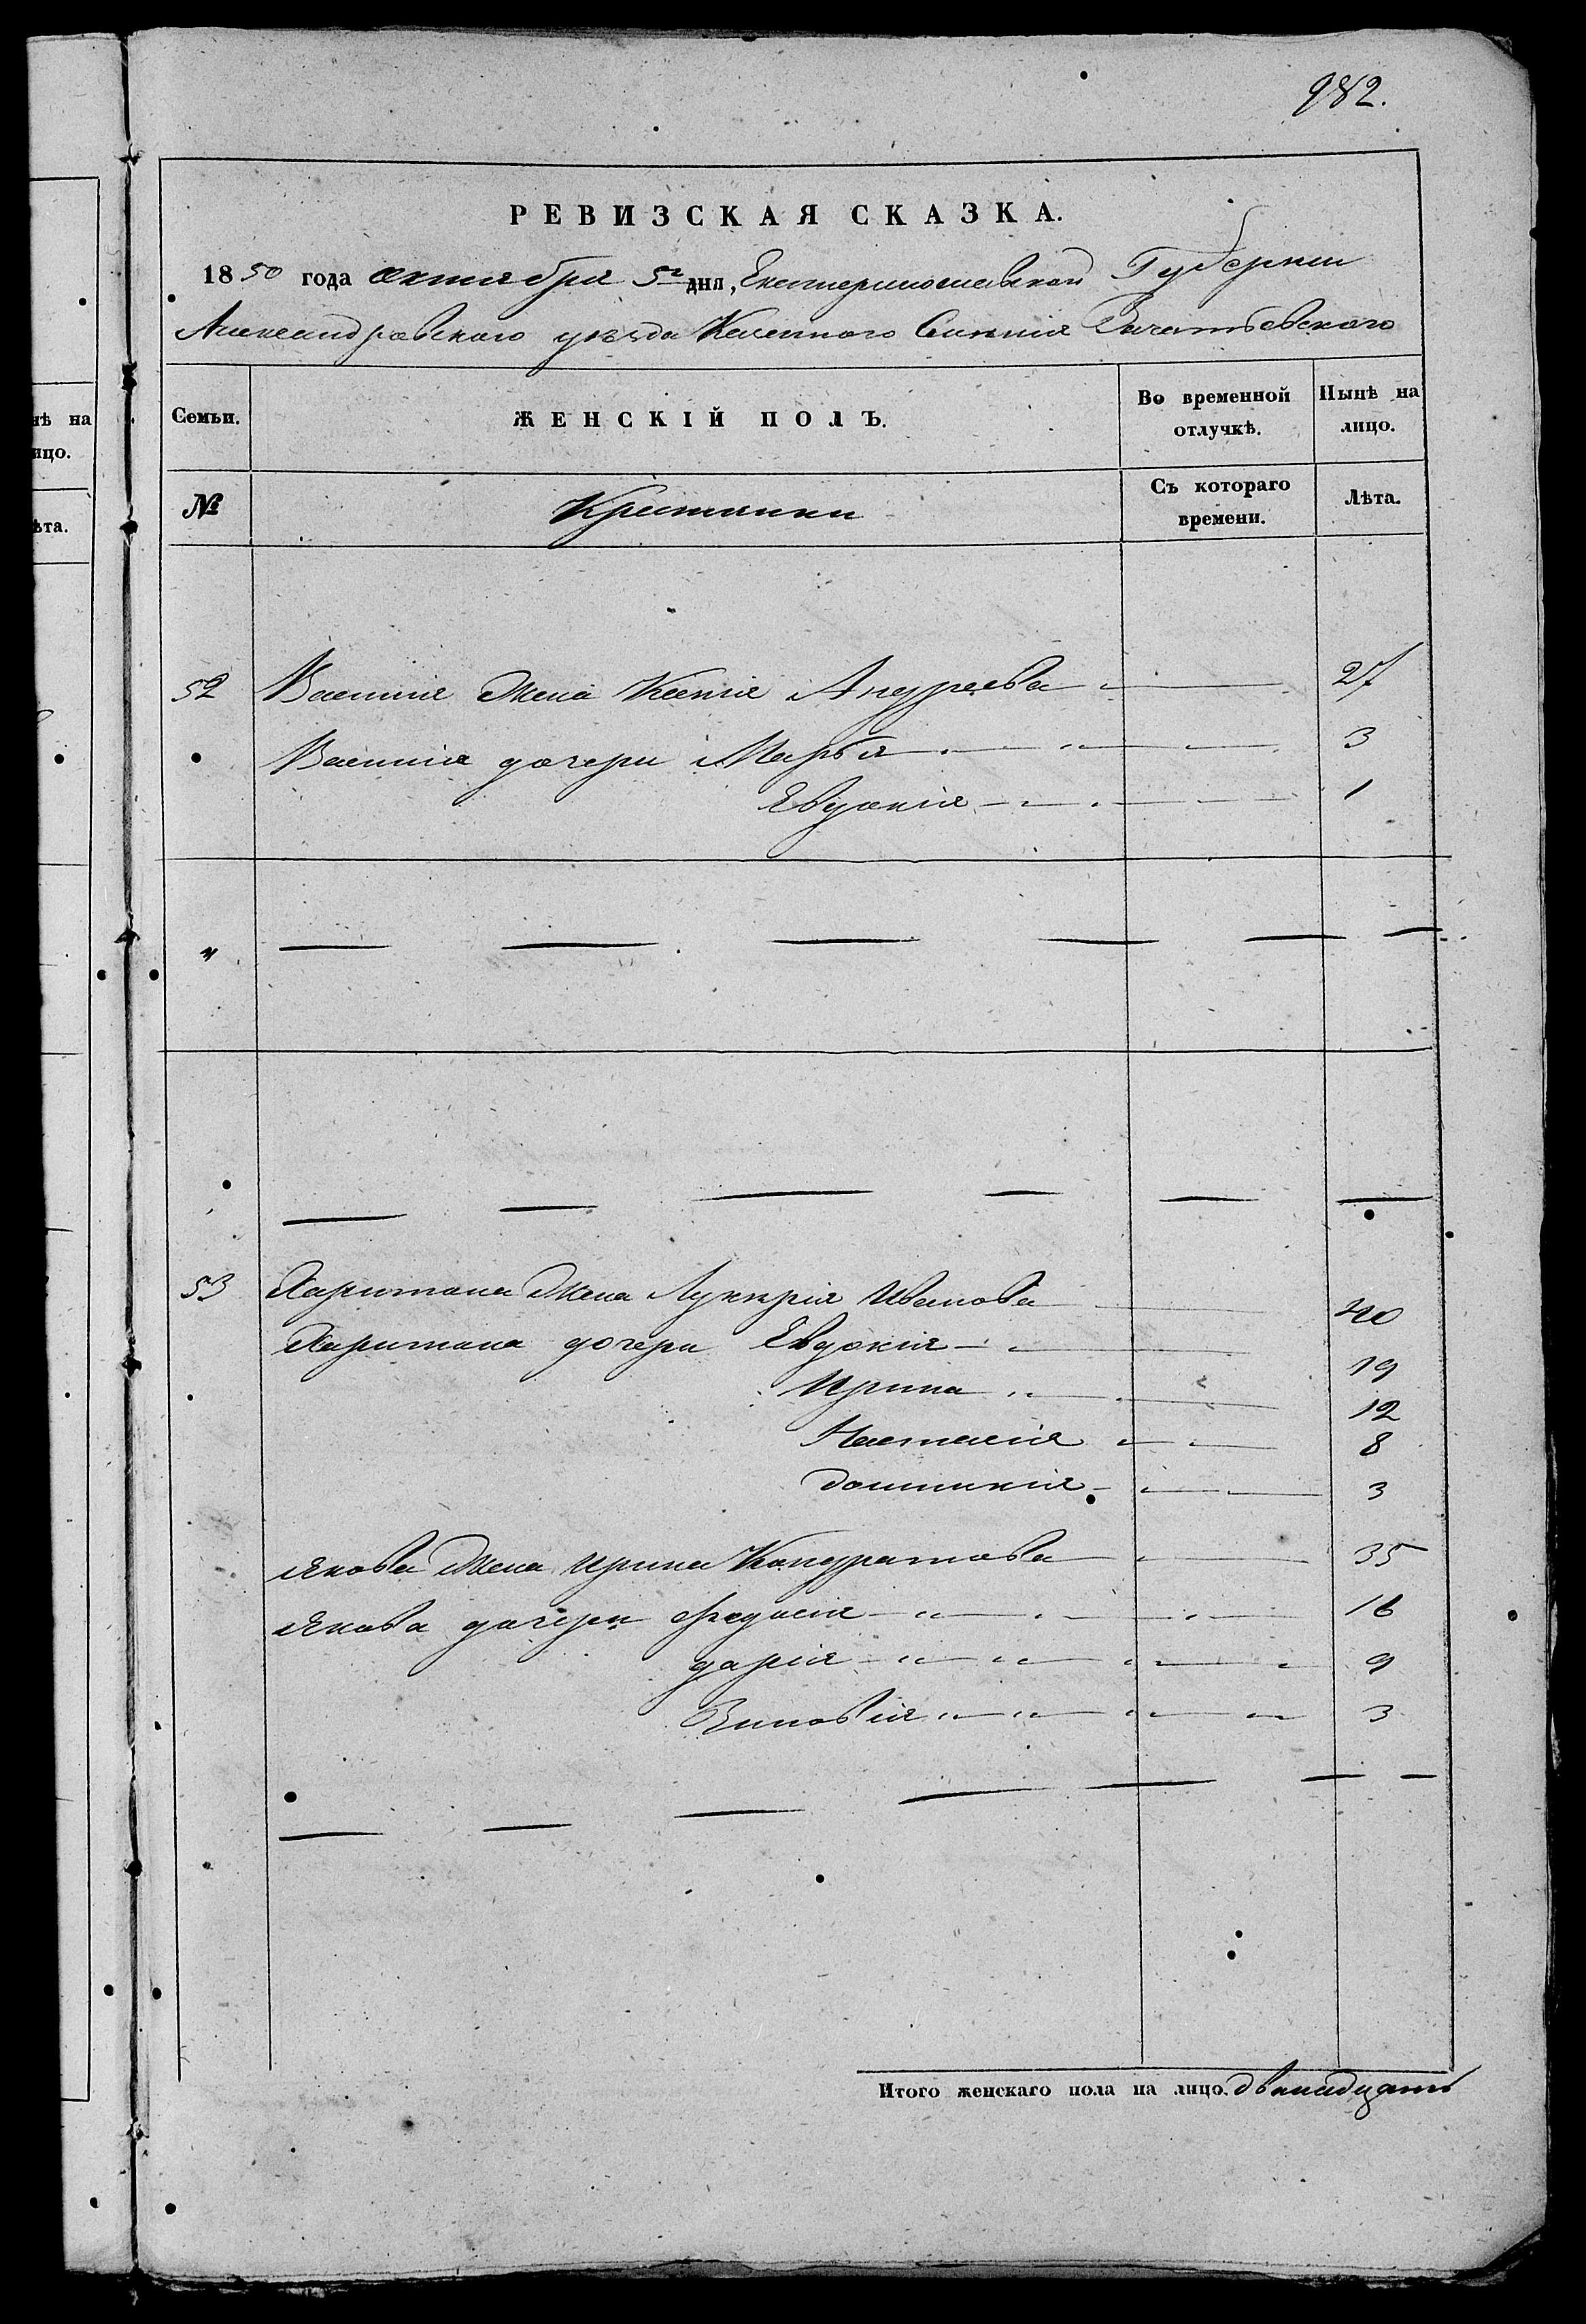 982.
РЕВИЗСКАЯ СКАЗКА.
1850 года октября 5го дня, Екатеринославской Губернии
Александровского уѣзда Казенного Селѣнія Зачатьевского
Семьи.
ЖЕНСКІЙ ПОЛЪ.
Во временной отлучкѣ.
Нынѣ на лицо.
№
Крестянки
Съ котораго времени.
Лѣта.
52 Василия Жена Ксения Андреева 27
Василия дочери Марья 3
Евдокия 1
53 Харитона Жена Лукирия Иванова 40
Харитона дочери Евдокия 19
Ирина 12
Настасия 8
Домникия 3
Якова Жена Ирина Кондратова 35
Якова дочери Федосия 16
дария 9
Зиновия 3
Итого женскаго пола на лицо. двенадцать
нѣ на
ицо.
ѣта.